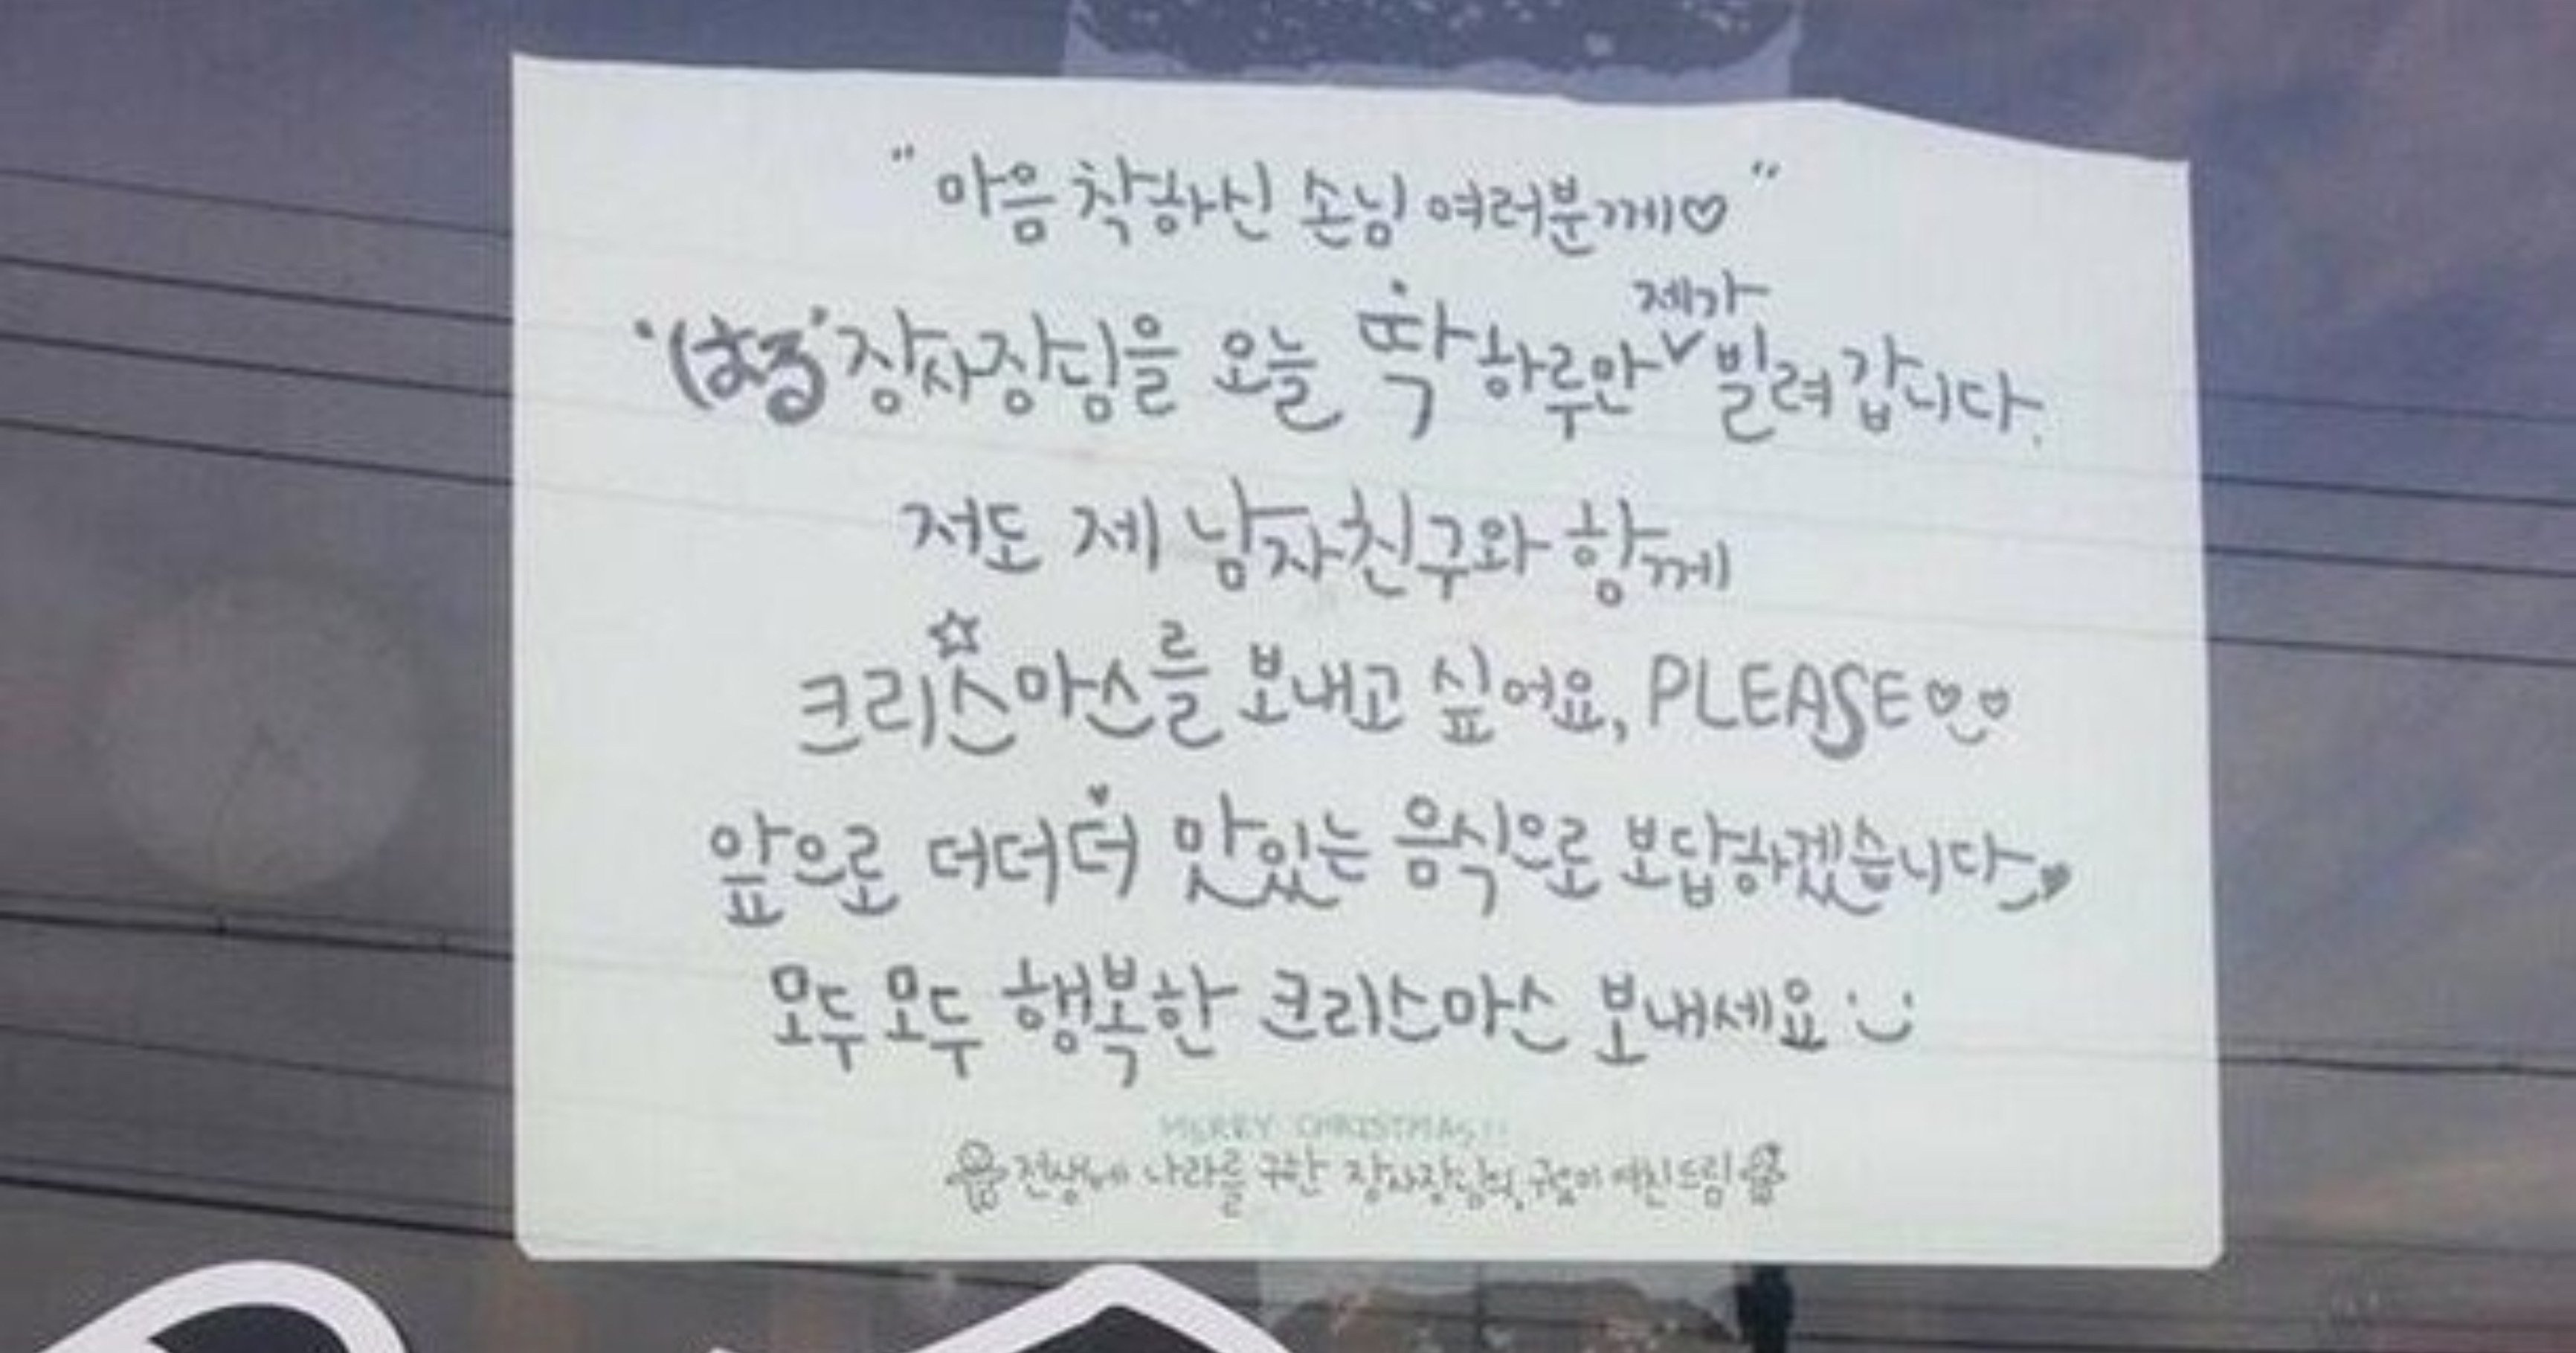 " 마음 착하신 손님 여러분께♡ "
'はる' 장사장님을 오늘 딱 하루만 ✓제가 빌려 갑니다.
저도 제 남자친구와 함께
크리스마스를 보내고 싶어요, PLEASE
앞으로 더더더 맛있는 음식으로 보답하겠습니다
모두모두 행복한 크리스마스 보내세요
MERRY CHRISTMAS!!
전생에 나라를 구한 장사장님의, 여친드림